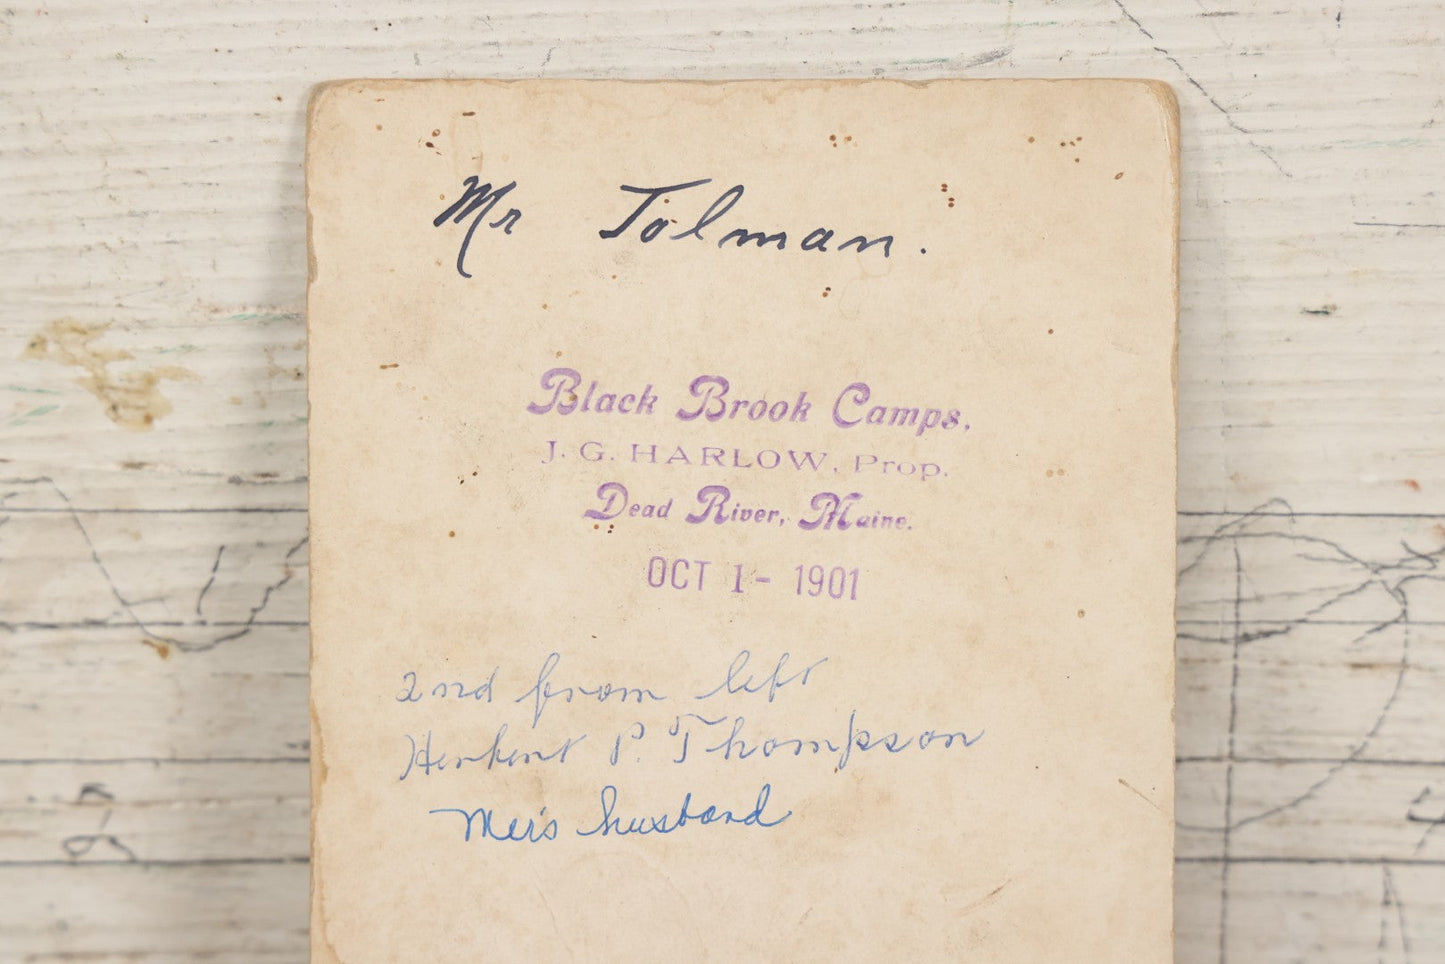 Mr Tolman.
Black Brook Camps,
J. G. HARLOW, Prop.
Dead River, Maine.
OCT 1- 1901
2nd from left
Herbert P. Thompson
husband